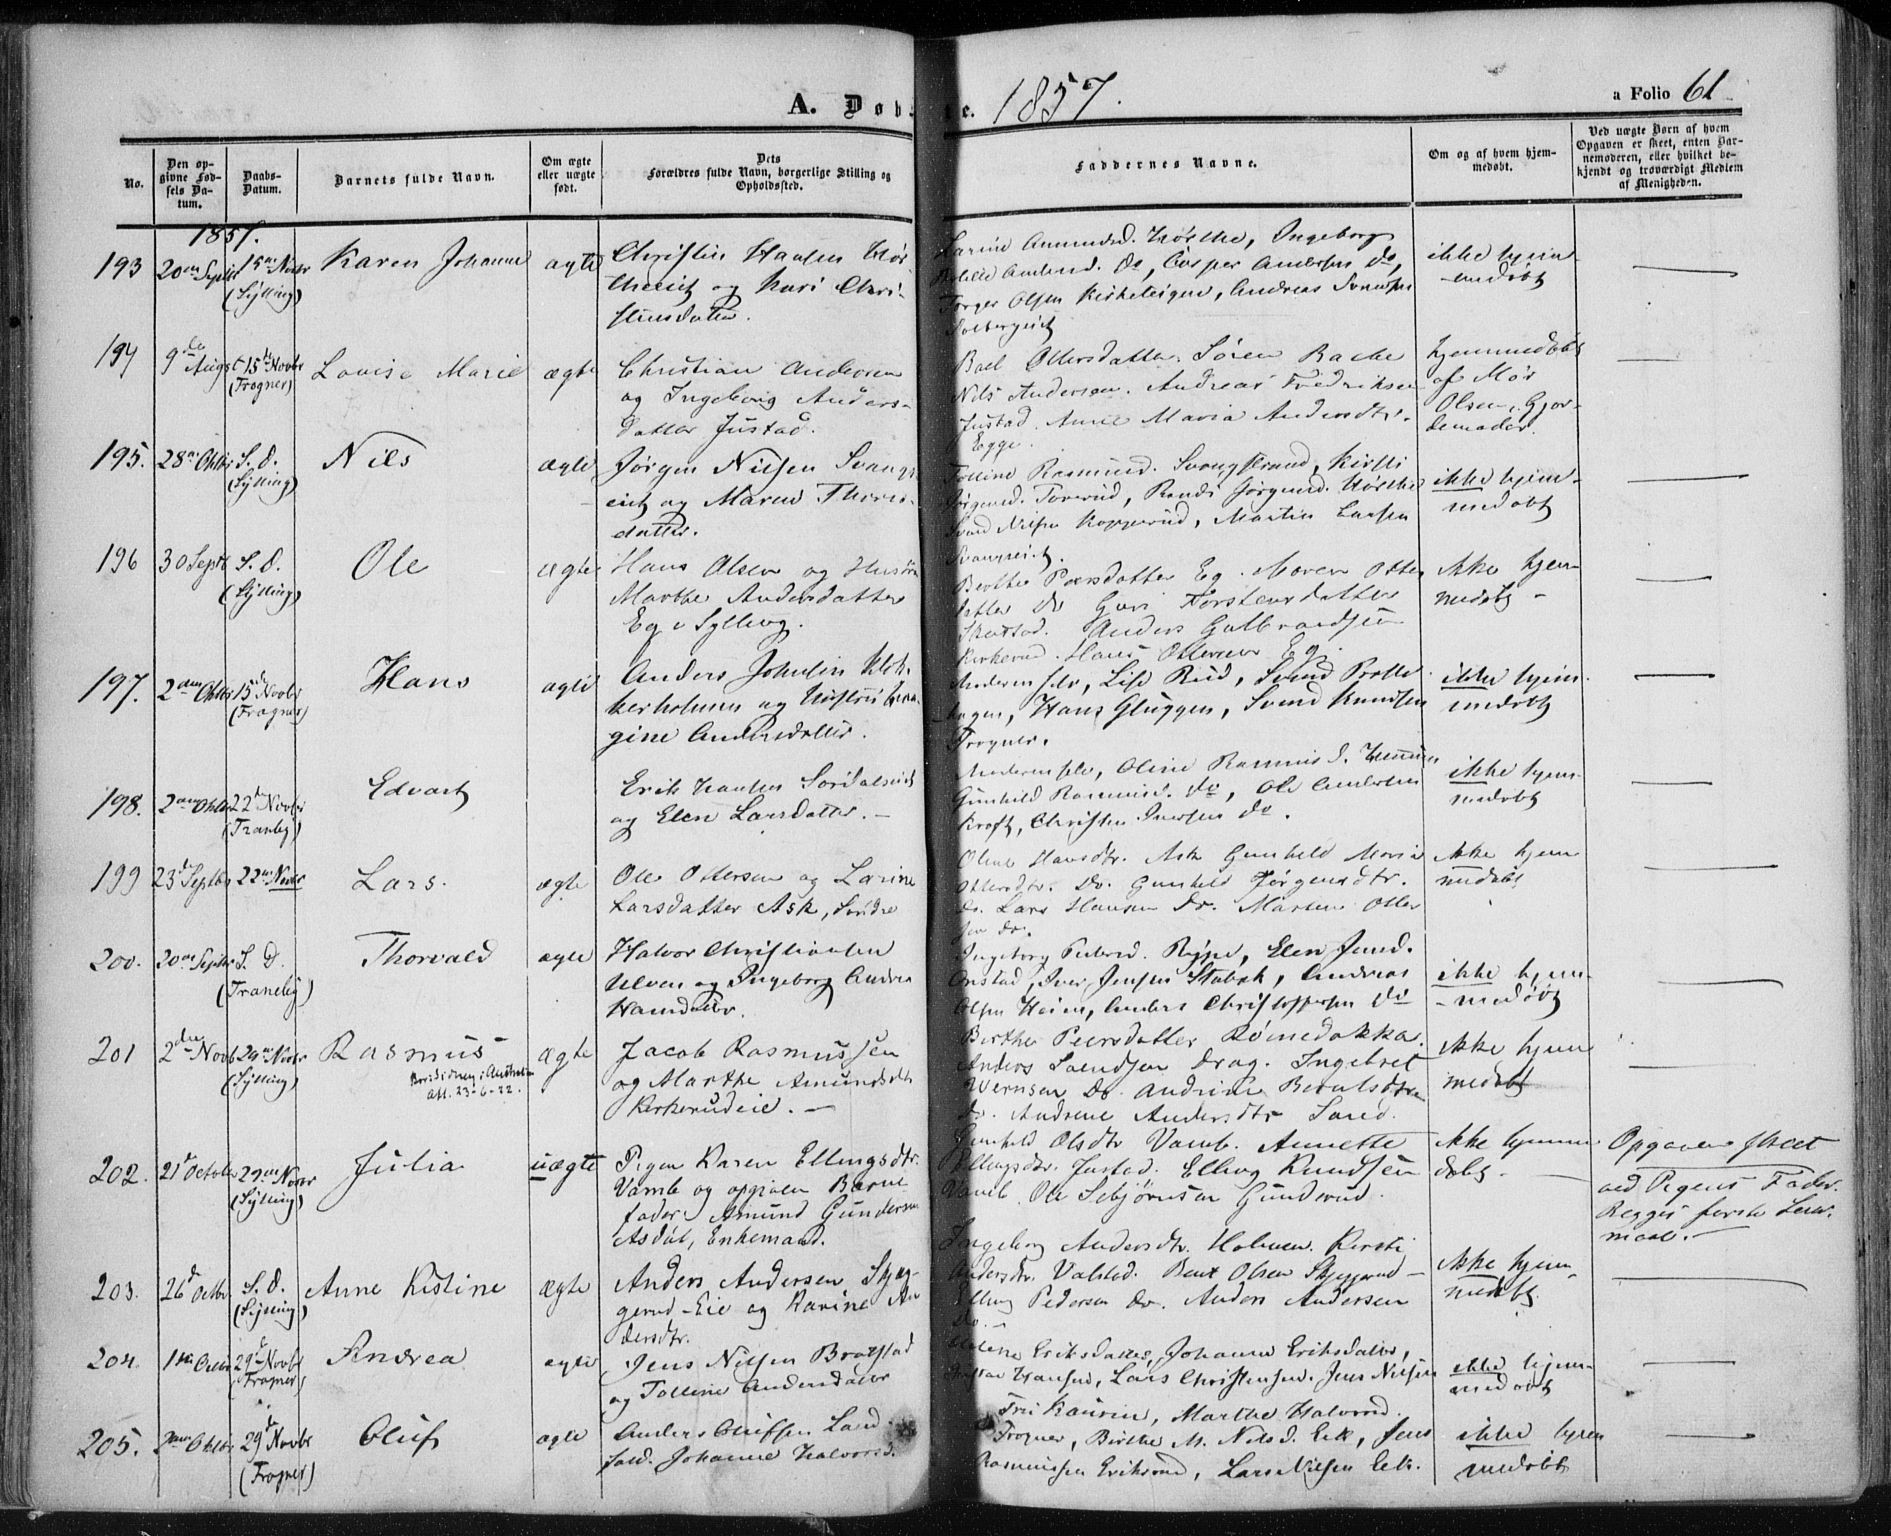 A. Døb e. 1857.
a Folio 61
No.
Den opgivne Fødsels Datum.
Daabs-Datum.
Barnets fulde Navn.
Om ægte eller uægte født.
Dets Forældres fulde Navn, borgerlige Stilling og Opholdssted.
Faddernes Navne.
Om og af hvem hjemmedøbt.
Ved uægte Børn af hvem Opgaven er skeet, enten Barnemoderen, eller hvilket bekjendt og troværdigt Medlem af Menigheden.
1857.
193 20de Septbr 15de Novbr (Sylling) Karen Johanne ægte
Christin Hansen
og Kari Chri-
stensdatter.
Ingeborg
Do, Casper Andersen Do,
Torger Olsen Kirketeigen, Andreas
ikke hjem-
medøbt
194 9de August 15de Novbr (Frogner) Lovise Marie ægte
Christian Andersen
og Ingeborg Anders-
datter Justad.
Boel Ottersdatter. Søren Bache
Nils Andersen. Andreas Fredriksen
Justad. Anne Maria Andersdtr.
Egge.
hjemmedøbt
af Mor
Olsen, Gjor-
demoder.
195. 28de Oktbr S. D. (Sylling) Nils ægte
Jørgen Nilsen Svangs-
eiet og Maren Thores-
datter.
Tolline Rasmusd. Svangstrand, Kirsti
Jørgensd. Toverud, Randi Jørgensd. Hørthe
Svend Nilsen Kopperud, Martin Larsen
Svangseiet.
ikke hjem-
medøbt
196 30 Septb S. D. (Sylling) Ole ægte
Hans Olsen og Hustru
Marthe Andersdatter
Eg i Sylling.
Berthe Peersdatter Eg. Maren Otters
datter Do Guri Torstensdatter
Skustad. Anders Gulbrandsen
Kirkerud. Hans Ottersen Eg.
ikke hjem
medøbt -
197. 2den Oktbr 15de Novbr (Frogner) Hans ægte
Anders Johnsen Klok-
kerholmen og Hustru
gine Andersdatter.
Moderen selv, Lise Rud, Svend
hagen, Hans Gluggen, Svend Knudsen
Frogner.
ikke hjem-
medøbt
198. 2den Oktbr 22de Novbr (Tranby) Edvart
Erik Hansen
og Elen Larsdatter. -
Moderen selv, Oline Rasmusd.
Gunhild Rasmusd. Do, Ole Andersen
Kroft, Christen Iversen Do.
ikke hjem-
medøbt
199 23de Septbr 22de Novbr Lars. ægte
Ole Ottersen og Larine
Larsdatter Ask, Søndre
Oline Hansdtr. Ask Gunhild Maria
Ottersdtr. Do. Gunhild Jørgensdtr.
Do. Lars Hansen Do. Morten Otter
sen Do.
ikke hjem
medøbt
200. 20de Septbr S. D. (Traneby) Thorvald ægte
Halvor Christiansen
Ulven og Ingeborg Andrea
Hansdatter.
Ingeborg Pedersd. Rype, Elen Jensd.
Onstad, Iver Jensen Stabæk, Andreas
Olsen Heien, Anders Christoffersen Do
ikke hjem-
- medøbt
201 2den Novb 29de Novbr (Sylling) Rasmus ægte
Bor i Sidney i Australia
att. 23-6-22.
Jacob Rasmussen
og Marthe Amundsdtr
Kirkerudeie. -
Berthe Peersdatter Rømedokka.
Anders Svendsen Drag. Ingebret
Wernsen Do. Andrine Berntsdtr
Do. Andrene Andersdtr Sørud.
ikke hjem
medøbt
202. 21de Octobr 29de Novbr (Sylling) Julia uægte
Pigen Karen Ellingsdtr.
Vamb og opgiven Barne
fader Amund Gundersen
Asdøl, Enkemand.
Gunhild Olsdtr Vamb. Annette
Ellingsdtr. Justad. Elling Knudsen
Vamb. Ole Sebjørnsen Gunderud.
ikke hjemme
døbt. -
Opgaven skeet
ved Pigens Fader.
Begges første Leier-
maal. -
203. 26de Octbr S. D. (Sylling) Anne Kistine ægte
Anders Andersen Skjæg-
gerud-Eie og Karine An
dersdtr.
Ingeborg Andersdtr. Holmen. Kersti
Andersdtr. Valstad. Bent Olsen Skjeggerud -
Elling Pedersen Do. Anders Andersen
Do. -
ikke hjem-
medøbt.
204. 1ste Octbr 29de Novbr (Frogner) Andrea ægte
Jens Nilsen Bratstad
og Tolline Andersdatter
Eriksdatter, Johanne Eriksdatter,
Hansen, Lars Christensen. Jens Nilsen
ikke hjem-
medøbt
205. 2den Oktbr 29de Novbr (Frogner) Oluf ægte
Anders Olufsen Land-
fald. Johanne Halvorsd.
Fru Kaurin, Marthe Halvorsd.
Frogner, Birthe M. Nilsd. Eek, Jens
Rasmussen Eriksrud, Lars Nilsen Eek.
ikke hjem
medøbt